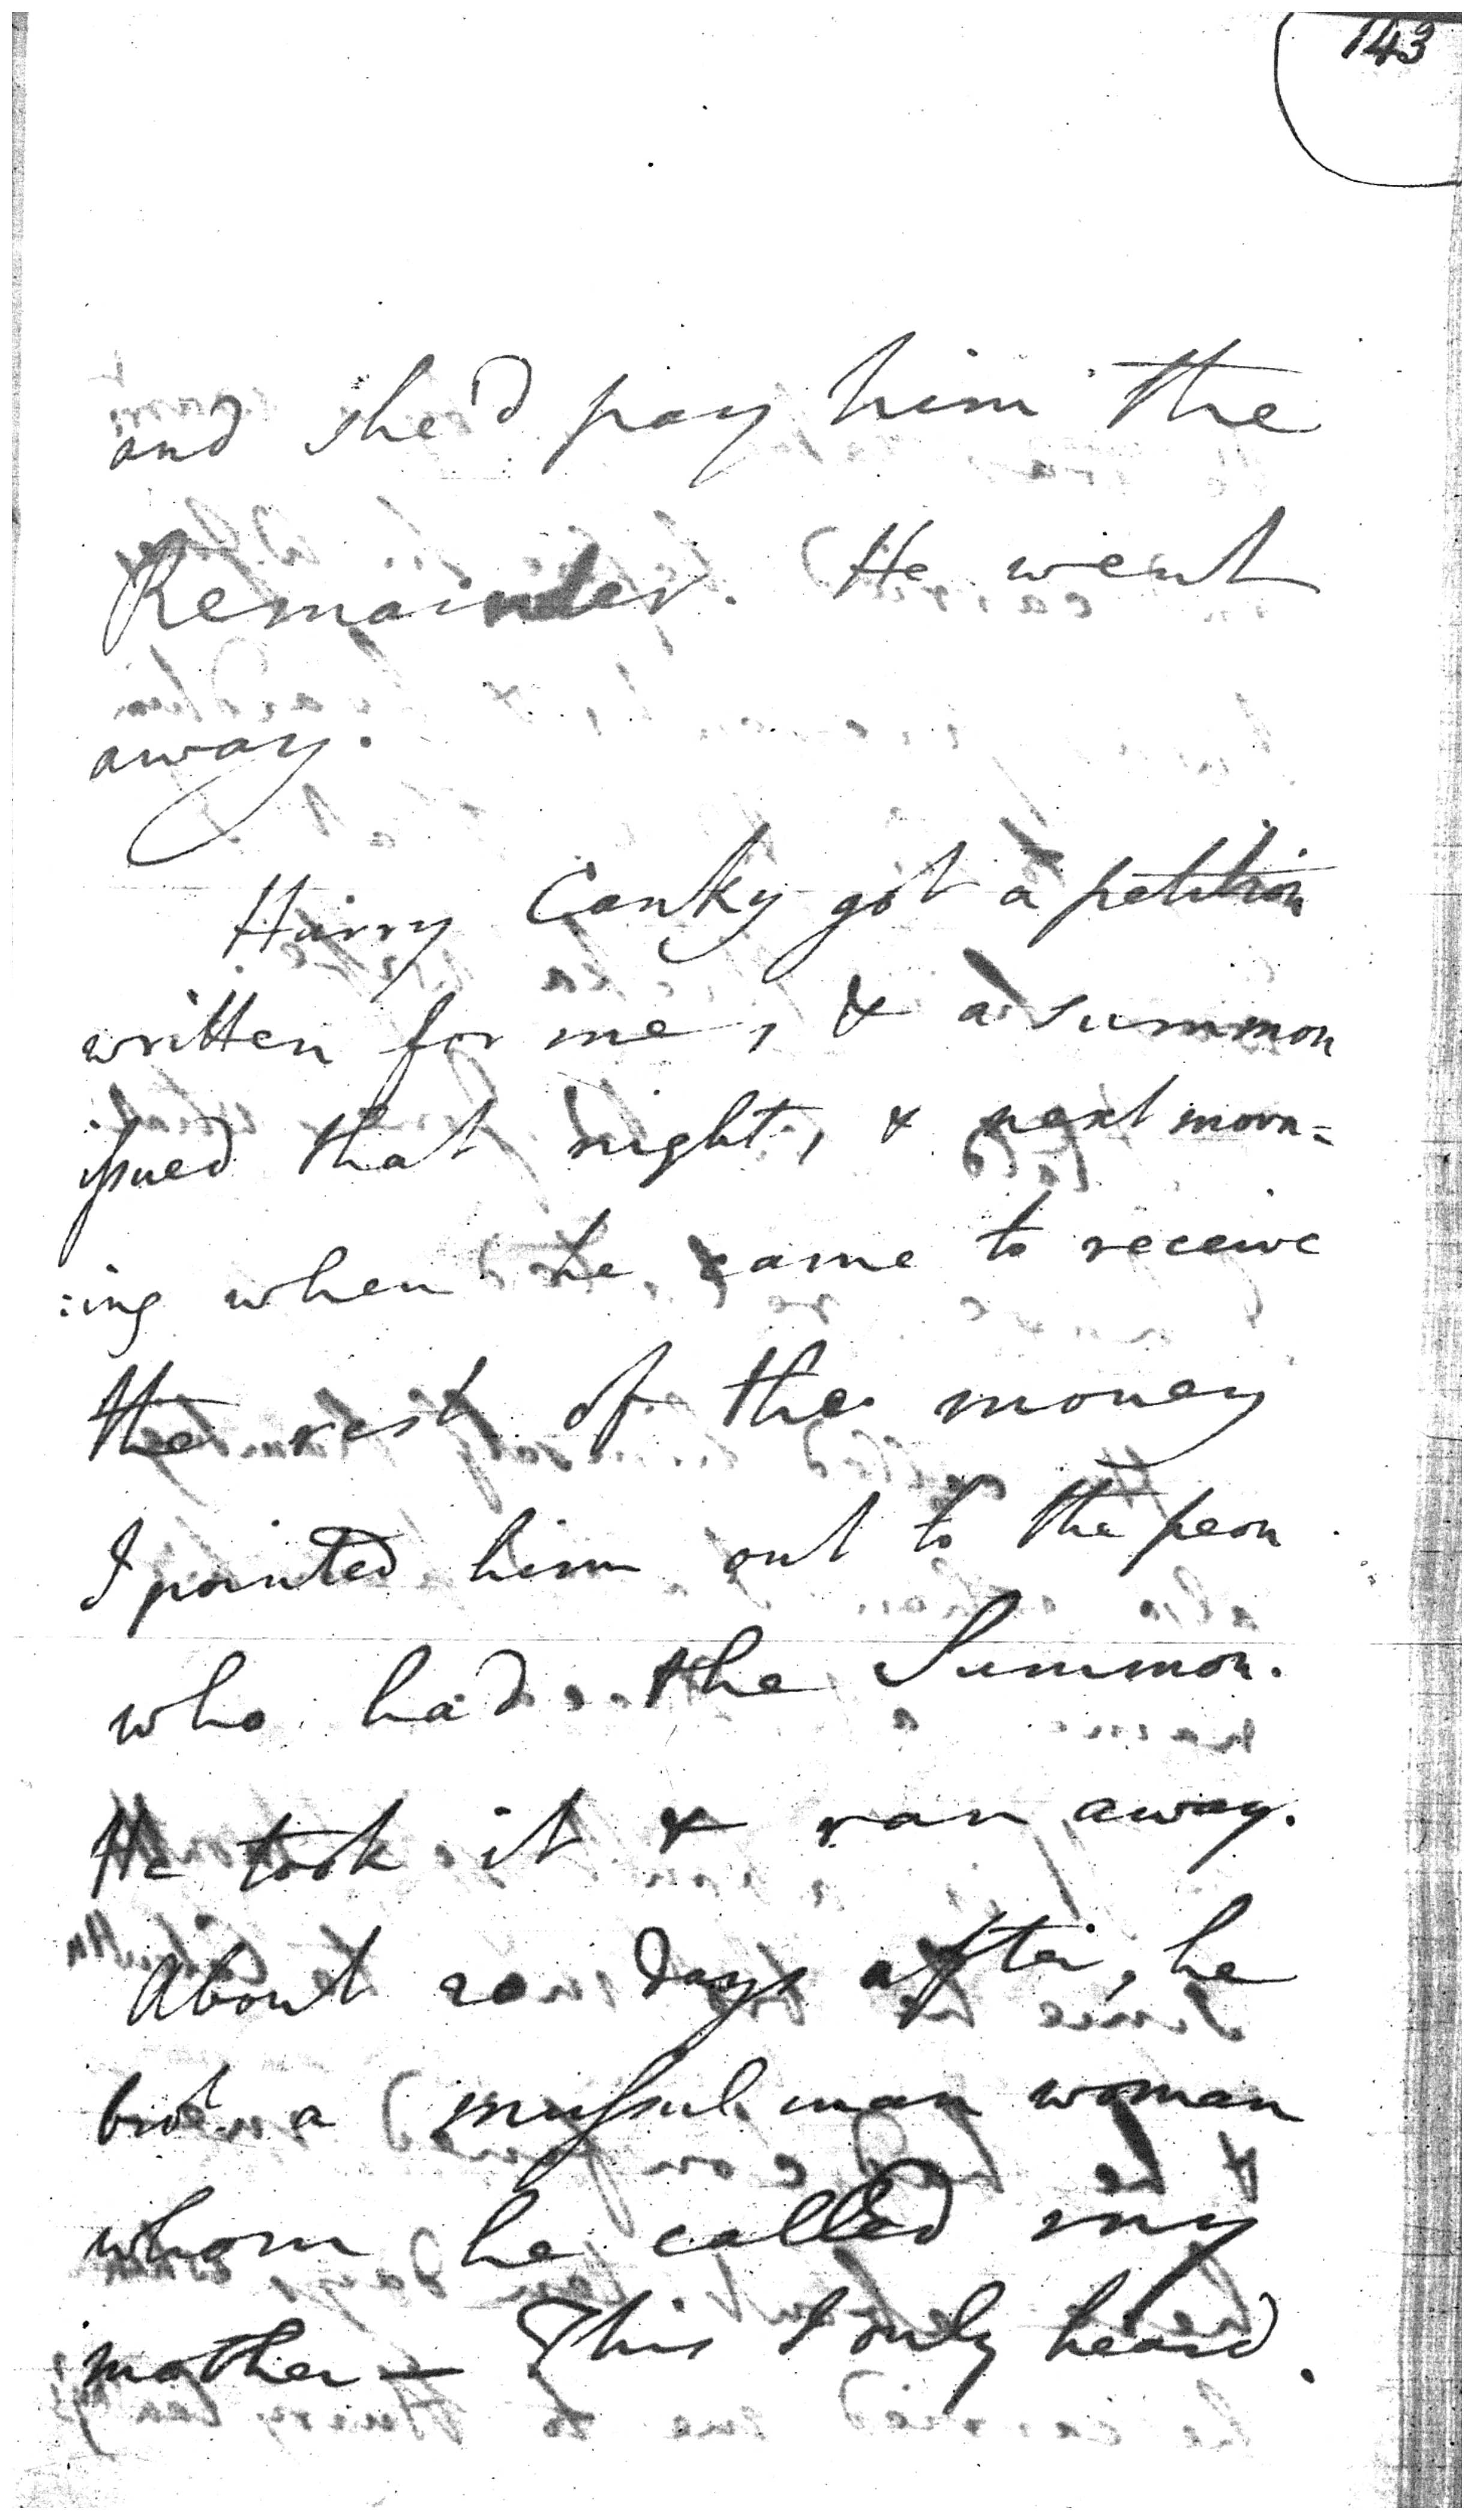 143
and she'd pay him the
Remainder. He went
away.
Harry Canky got a petition
written for me, & a summon
issued that night, & next morn=
:ing when he came to receive
the rest of the money
I pointed him out to the peon
who had the Summon.
He took it & ran away.
About 20 days after, he
brot a mussulman woman
whom he called my
mother — This I only heard.